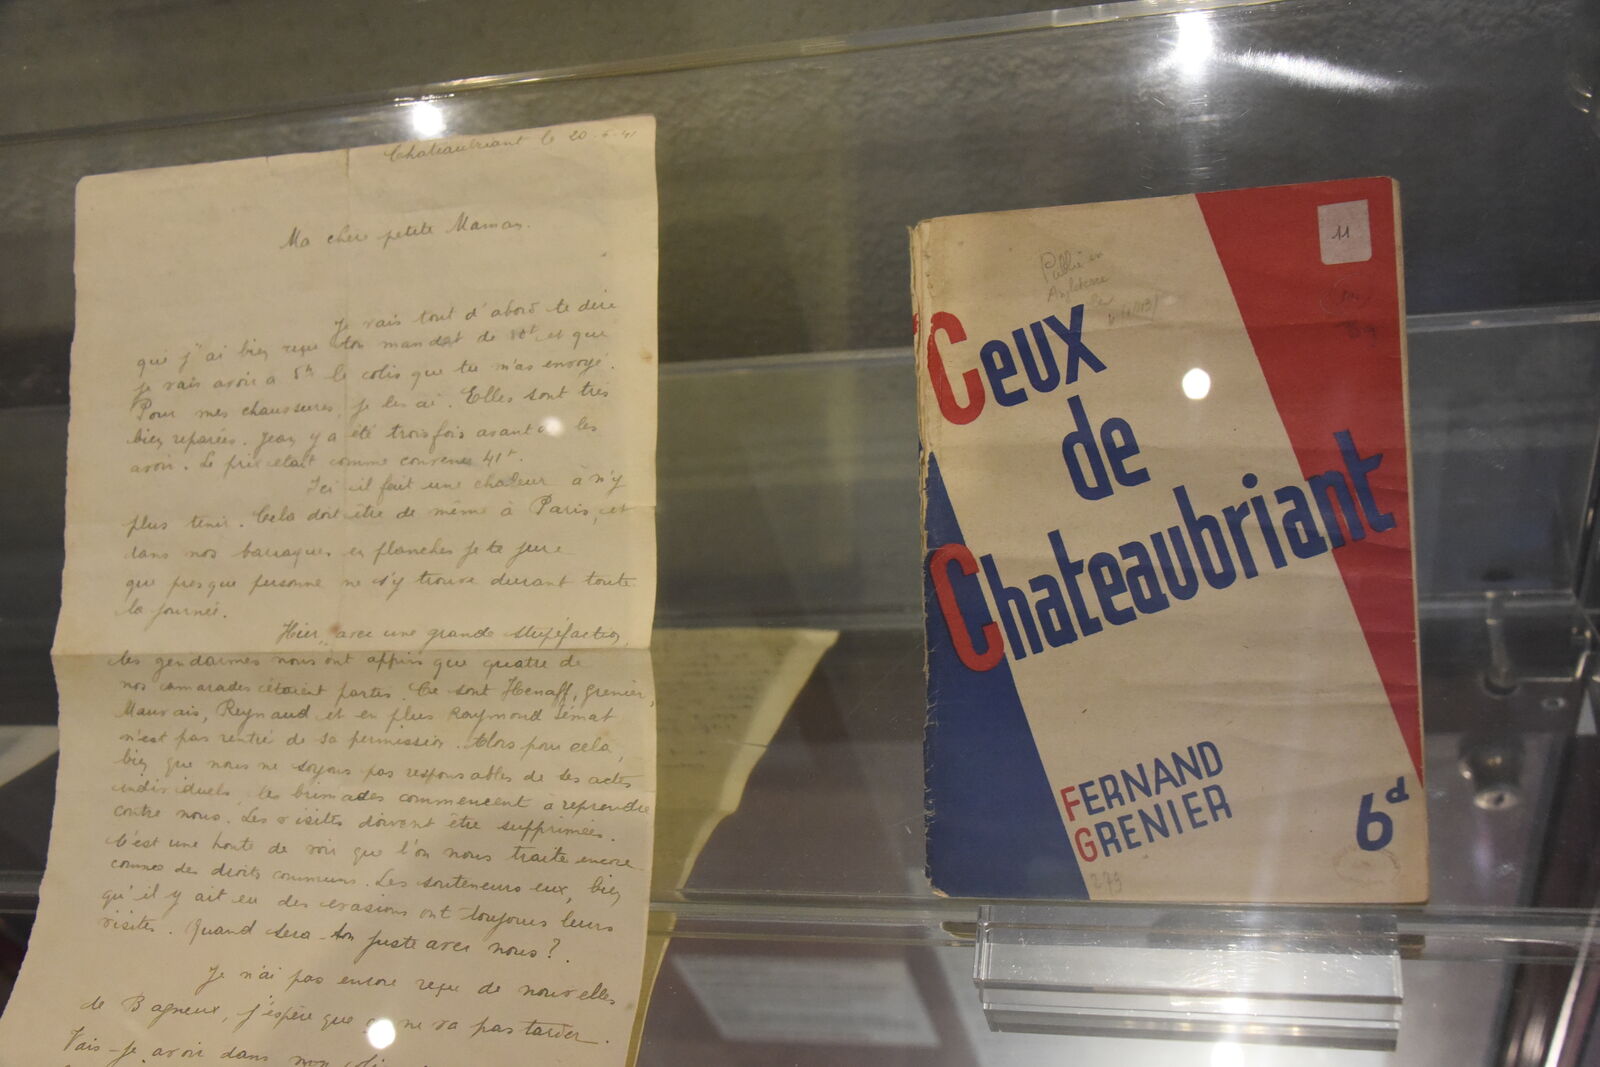 Chateaubriant le 20-6-41
Ma chère petite Maman.
Je vais tout d'abord te dire
que j'ai bien reçu ton mandat de et que
je vais avoir a 5h le colis que tu m'as envoyé.
Pour mes chaussures, je les ai. Elles sont très
bien reparées. Jean y a été trois fois avant de les
avoir. Le prix etait comme convenu 41f.
Ici il fait une chaleur à n'y
plus tenir. Cela doit être de même à Paris, et
dans nos barraques en planches je te jure
que presque personne ne s'y trouve durant toute
la journée.
Hier, avec une grande stupéfaction,
les gendarmes nous ont appris que quatre de
nos camarades étaient partis. Ce sont Henaff, Grenier,
Mauvais, Reynaud et en plus Raymond Sémat
n'est pas rentré de sa permission. Alors pour cela,
bien que nous ne soyons pas responsables de ses actes
individuels, les brimades commencent à reprendre
contre nous. Les visites doivent être supprimées.
C'est une honte de voir que l'on nous traite encore
comme des droits communs. Les souteneurs eux, bien
qu'il y ait eu des evasions ont toujours leurs
visites. Quand sera-ton juste avec nous?.
Je n'ai pas encore reçu de nouvelles
de Bagneux, j'espère que ça ne va pas tarder.
Vais-je avoir dans mon colis
11
Publié en
Angleterre
Ceux
de
Chateaubriant
FERNAND
GRENIER
6d
279